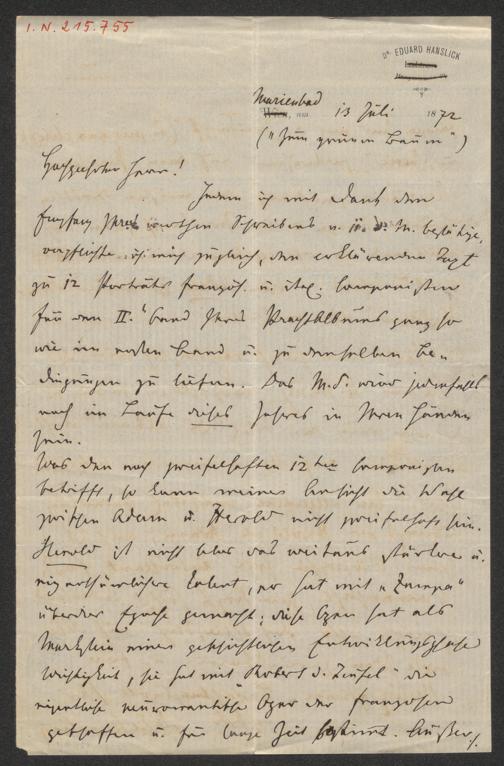 I. N. 215.755
Dr. EDUARD HANSLICK
Marienbad 13 Juli 1872
("Zum grünen Baum")
Hochgeehrter Herr!
Indem ich mit Dank den
Empfang Ihres werthen Schreibens v. d. M. bestätige,
verpflichte ich mich zugleich, den erklärenden Text
zu 12 Porträts französ. u. ital. Componisten
für den II. Band Ihres Prachtalbums ganz so
wie im ersten Band u. zu denselben Be-
dingungen zu liefern. Das M.S. wird jedenfalls
noch im Laufe dieses Jahres in Ihren Händen
sein.
Was den noch zweifelhaften 12ten Componisten
betrifft, so kann meines Erachtens die Wahl
zwischen Adam u. Herold nicht zweifelhaft sein.
Herold ist nicht blos das weitaus stärkere u.
eigenthümlichere Talent, er hat mit "Zampa"
überdies Epoche gemacht; diese Oper hat als
Markstein einer geschichtlichen Entwicklungsphase
Wichtigkeit, sie hat mit "Robert d. Teufel" die
eigentliche neuromantische Oper der Franzosen
geschaffen u. für lange Zeit bestimmt. Außer